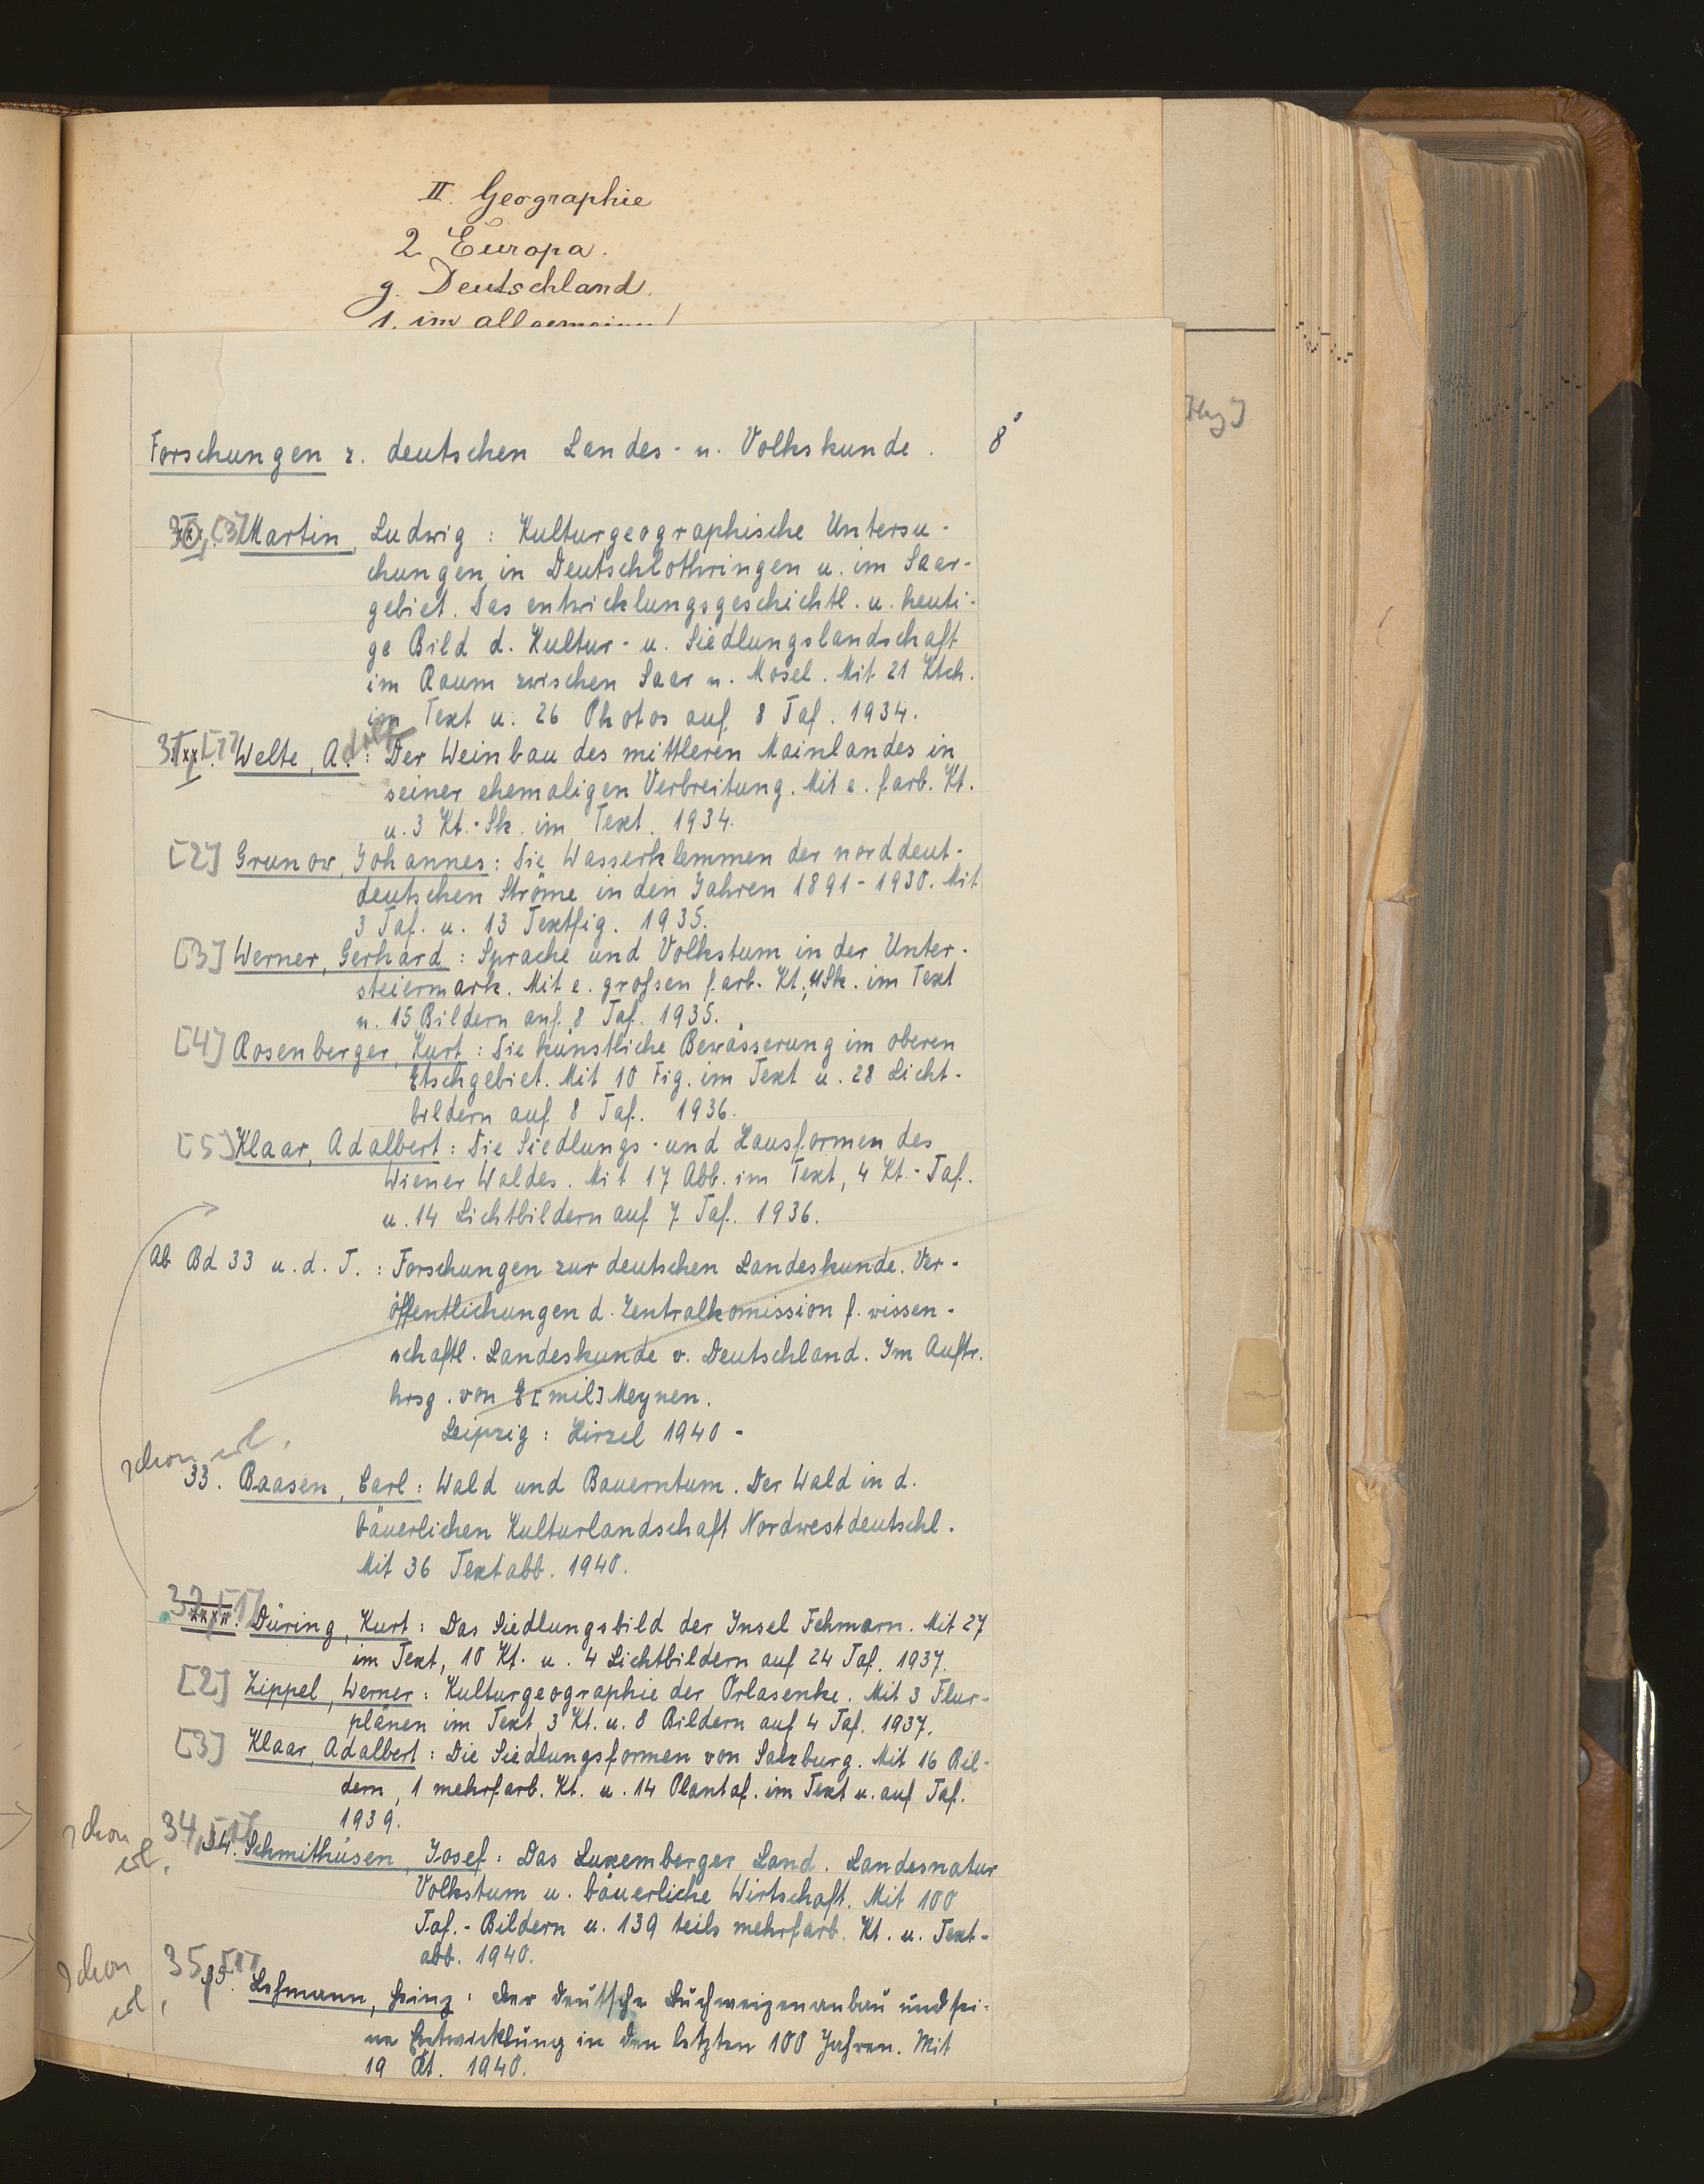 II. Geographie
2 Europa.
g. Deutschland.
1. im allgemeinen!
Forschungen z. deutschen Landes- u. Volkskunde. 8°
30,[3] Martin, Ludwig: Kulturgeographische Untersu-
chungen in Deutschlothringen u. im Saar-
gebiet. Das entwicklungsgeschichtl. u. heuti-
ge Bild d. Kultur- u. Siedlungslandschaft
im Raum zwischen Saar u. Mosel. Mit 21 Ktch.
im Text u. 26 Photos auf 8 Taf. 1934.
31,[1] Welte, Adolf: Der Weinbau des mittleren Mainlandes in
seiner ehemaligen Verbreitung. Mit e. farb. Kt.
u. 3 Kt.-Sk. im Text. 1934.
[2] Grunow, Johannes: Die Wasserklemmen der norddeut-
deutschen Ströme in den Jahren 1891-1930. Mit
3 Taf. u. 13 Textfig. 1935.
[3] Werner, Gerhard: Sprache und Volkstum in der Unter-
steiermark. Mit e. großen farb. Kt., 4 Sk. im Text
u. 15 Bildern auf 8 Taf. 1935.
[4] Rosenberger, Kurt: Die künstliche Bewässerung im oberen
Etschgebiet. Mit 10 Fig. im Text u. 28 Licht-
bildern auf 8 Taf. 1936.
[5] Klaar, Adalbert: Die Siedlungs- und Hausformen des
Wiener Waldes. Mit 17 Abb. im Text, 4 Kt.-Taf.
u. 14 Lichtbildern auf 7 Taf. 1936.
Ab Bd 33 u. d. T.: Forschungen zur deutschen Landeskunde. Ver-
öffentlichungen d. Zentralkomission f. wissen-
schaftl. Landeskunde v. Deutschland. Im Auftr.
hrsg. von E[mil] Meynen.
Leipzig: Hirzel 1940 -
schon erl.
33. Baasen, Carl: Wald und Bauerntum. Der Wald in d.
bäuerlichen Kulturlandschaft Nordwestdeutschl.
Mit 36 Textabb. 1940.
32,[1] Düring, Kurt: Das Siedlungsbild der Insel Fehmarn. Mit 27
im Text, 10 Kt. u. 4 Lichtbildern auf 24 Taf. 1937.
[2] Zippel, Werner: Kulturgeographie der Orlasenke. Mit 3 Flur-
plänen im Text, 3 Kt. u. 8 Bildern auf 4 Taf. 1937.
[3] Klaar, Adalbert: Die Siedlungsformen von Salzburg. Mit 16 Bil-
dern, 1 mehrfarb. Kt. u. 14 Plantaf. im Text u. auf Taf.
1939.
schon erl.
34,[1] 34. Schmithüsen, Josef: Das Luxemberger Land. Landesnatur
Volkstum u. bäuerliche Wirtschaft. Mit 100
Taf.-Bildern u. 139 teils mehrfarb. Kt. u. Text-
abb. 1940.
schon erl.
35,[1] 35. Lehmann, Heinz: Der deutsche Buchweizenanbau und sei-
ne Entwicklung in den letzten 100 Jahren. Mit
19 Kt. 1940.